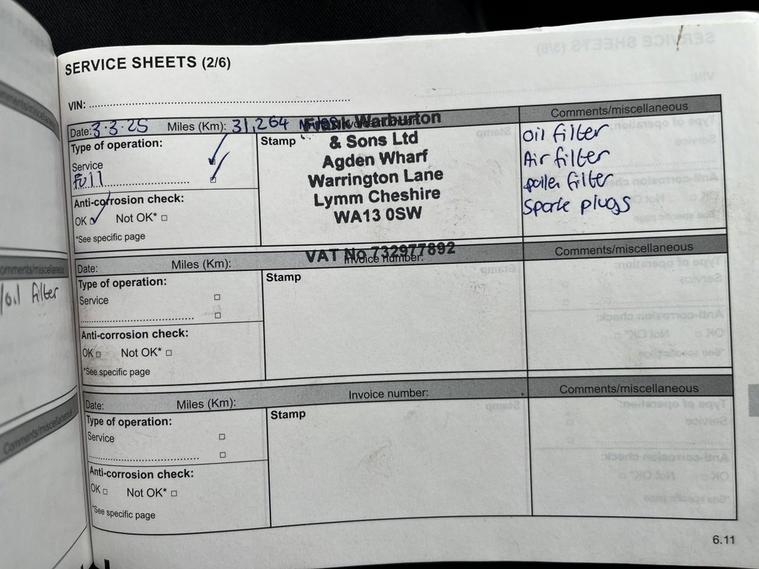 SERVICE SHEETS (2/6)
VIN:
Date: 3-3-25 Miles (Km): 31,264
Comments/miscellaneous
Type of operation:
Service
Full
Anti-corrosion check:
OK Not OK*
*See specific page
Stamp
Frank Warburton
& Sons Ltd
Agden Wharf
Warrington Lane
Lymm Cheshire
WA13 0SW
VAT No 732977892
Oil filter
Air filter
pollen filter
Spark plugs
Date: Miles (Km): Invoice number:
Comments/miscellaneous
Type of operation:
Service
Anti-corrosion check:
OK Not OK*
*See specific page
Stamp
Date: Miles (Km): Invoice number:
Comments/miscellaneous
Type of operation:
Service
Anti-corrosion check:
OK Not OK*
*See specific page
Stamp
6.11
omments/miscellaneous
/oil filter
Comments/miscellaneous